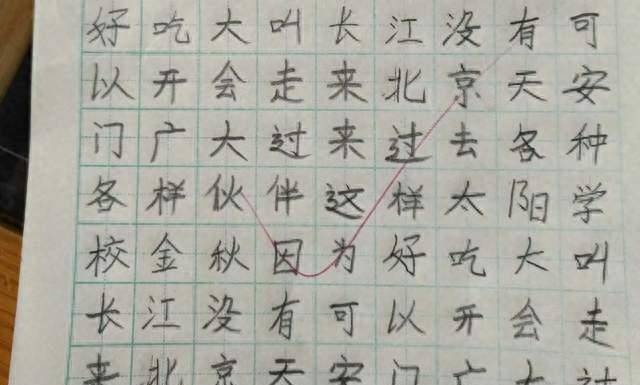 好吃大叫长江没有可
以开会走来北京天安
门广大过来过去各种
各样伙伴这样太阳学
校金秋因为好吃大叫
长江没有可以开会走
来北京天安门广大过